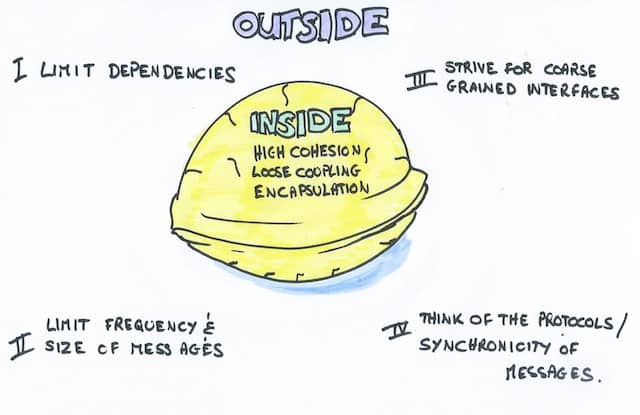 OUTSIDE
I LIMIT DEPENDENCIES
III STRIVE FOR COARSE
GRAINED INTERFACES
INSIDE
HIGH COHESION/
LOOSE COUPLING
ENCAPSULATION
LIMIT FREQUENCY &
II SIZE OF MESSAGES
IV THINK OF THE PROTOCOLS/
SYNCHRONICITY OF
MESSAGES.